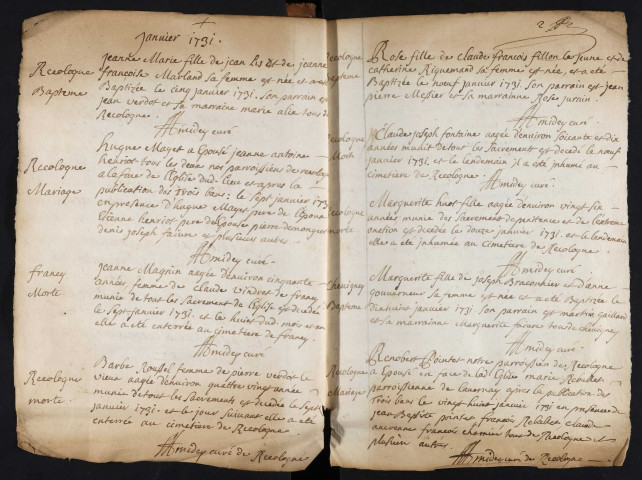 Janvier 1731.
Recologne
Bapteme
Jeanne Marie fille de jean Lis et de jeanne
francoise Marland sa femme est née et a été
Baptizée le cinq janvier 1731. Son parrain est
jean verdot et sa marraine marie alix tous de
Recologne.
AA midey curé
Recologne
Mariage
Hugue Mayet a Epousé jeanne antoine
henriot tous les deux nos parroissiens de recologne
a la face de l'Eglise dud. lieu et apres la
publication des trois bans; le sept janvier 173
en presence d'hugue Mayet pere de l'Epoux
Etienne henriot pere de l'epouse pierre demonges
denis joseph faivre et plusieurs autres.
AA midey curé
franey
Morte
Jeanne Magnin aagée denviron cinquante
années femme de claude vindret de franey
munie de tous les Sacrement de l'Eglise est decedée
le Sept janvier 1731. et le huict dud. mois et an
elle a été enterrée au cimetiere de franey.
AA midey curé
Recologne
morte
Barbe Roussel femme de pierre verdot le
vieux aagée denviron quattre vingt année
munie de tous les Sacrements est decedée le Sept
janvier 1731. et le jour Suivant elle a été
enterrée au cimetiere de Recologne.
AA midey curé de Recologne
2
Recologne
Bapteme
Rose fille de claude francois fillon le jeune et de
catherine Riquemand sa femme est née, et a été
Baptizée le neuf janvier 1731. Son parrain est jean
pierre Messier et sa marrainne Rose jurain.
AA midey curé
Recologne
Mort
Claude joseph fontaine aagé denviron soixante et dix
années munit de tout les Sacrement est decedé le neuf
janvier 1731. et le lendemain il a été inhumé au
cimetiere de Recologne.
AA midey curé
Recologne
morte
Marguerite huot fille aagée denviron vingt six
années munie des Sacrement de penitence et de l'extreme
onction est decedée le douze janvier 1731. et le lendemain
elle a été inhumée au cimetiere de Recologne.
AA midey curé
Chevigney
Bapteme
Marguerite fille de joseph Braconnier et d'anne
gouverneur sa femme est née et a été Baptizée le
dixhuict janvier 1731. son parrain est martin gaillard
et sa marrainne Marguerite faivre tous de chevigney
AA midey curé
Recologne
Mariage
Renobert Pointet notre parroissien de Recologne
a Epousé en face de la d. Eglise marie Rebillet
parroissienne de tavernay apres la publication des
trois bans le vingt huict janvier 1731 en presence de
jean Baptiste pointet francois Rebillet claude
auxenne francois chemin tous de Recologne et
plusieurs autres.
AA midey curé de Recologne